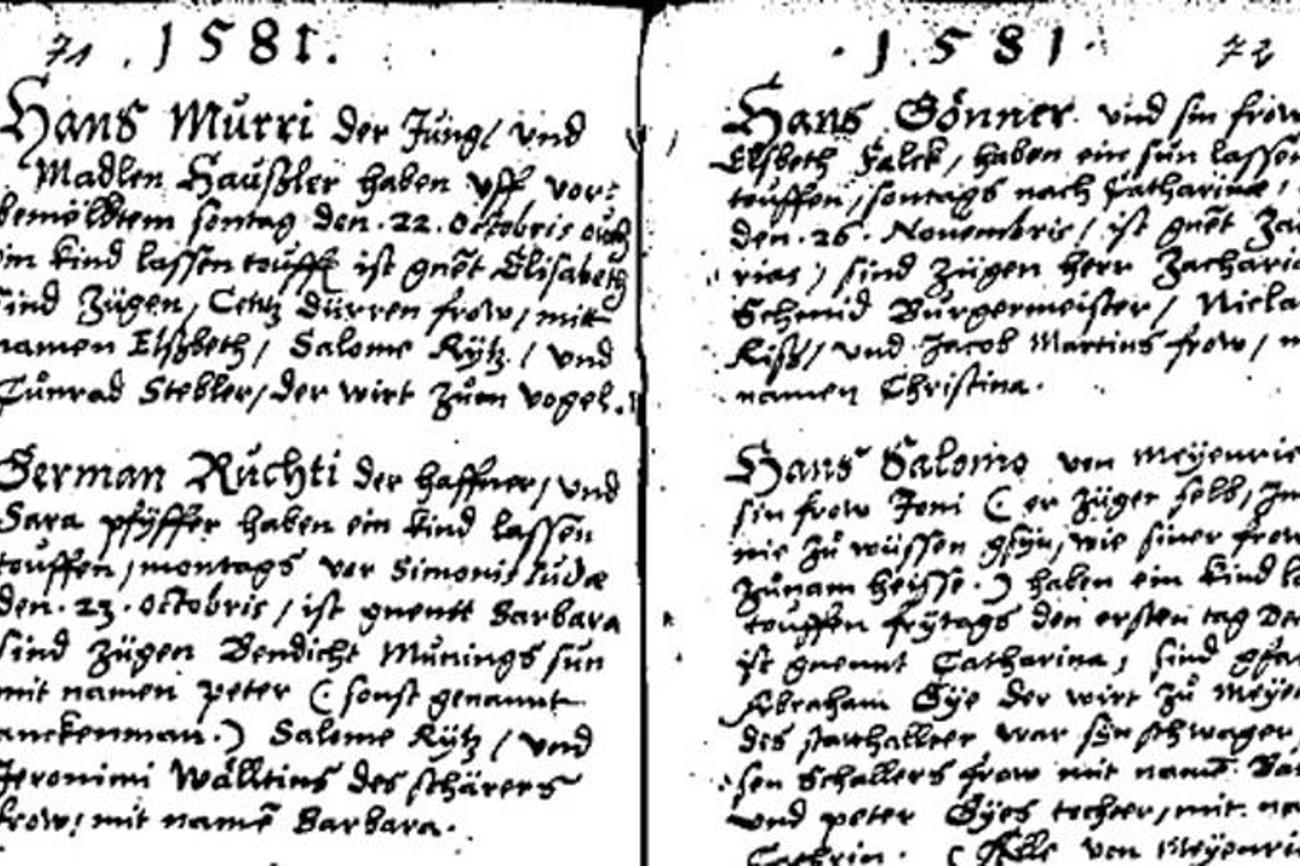 71 . 1581.
Hans Murri der Jüng/ vnd
Madlen Haußler haben vff vor-
bemöldtem sontag den .22. Octobris ouch
ein kind lassen touffen ist gnēt Elisabeth
sind zügen, dürren frow, mitt
namen Elßbeth/ Salome Kÿtz / vnd
Cůnrad Stebler/ der wirt zům vogel.
German Ruchti der haffner, vnd
Sara pfÿffer haben ein kind lassen
touffen, montags vor Simonis Judæ
den .23. Octobris / ist gnentt Barbara
sind zügen Bendicht Münings sun
mit namen peter (: sonst genannt
anckenman.) Salome Kÿtz / vnd
Jeronimi Wälltins des schärers
frow, mit namē Barbara.
. 1581 . 72
Hans Gönner vnd sin frow
Elsbeth Falck, haben ein sün lassen
touffen, sontags nach Catharinæ,
den .26. Novembris/ ist gnēt Zac
rias, sind zügen herr Zacharia
Schmid Burgermeister/ Nicla
Kißs/ vnd Jacob Martins frow, m
namen Christina.
Hans Salomo von Meÿenrie
sin frow Joni (: er züger selb, Im
nie zů wüssen gsÿn, wie siner frow
zůnam heisse.) haben ein kind la
touffen frÿtags den ersten tag Dec
ist gnennt Catharina, sind
Abraham Gÿe der wirt zů Meÿe
des statthallter war sÿn schwager,
sen Schallers frow mit namē Bar
vnd peter Gÿes tochter, mit na
Cathrin. ( Alle von Meÿenri